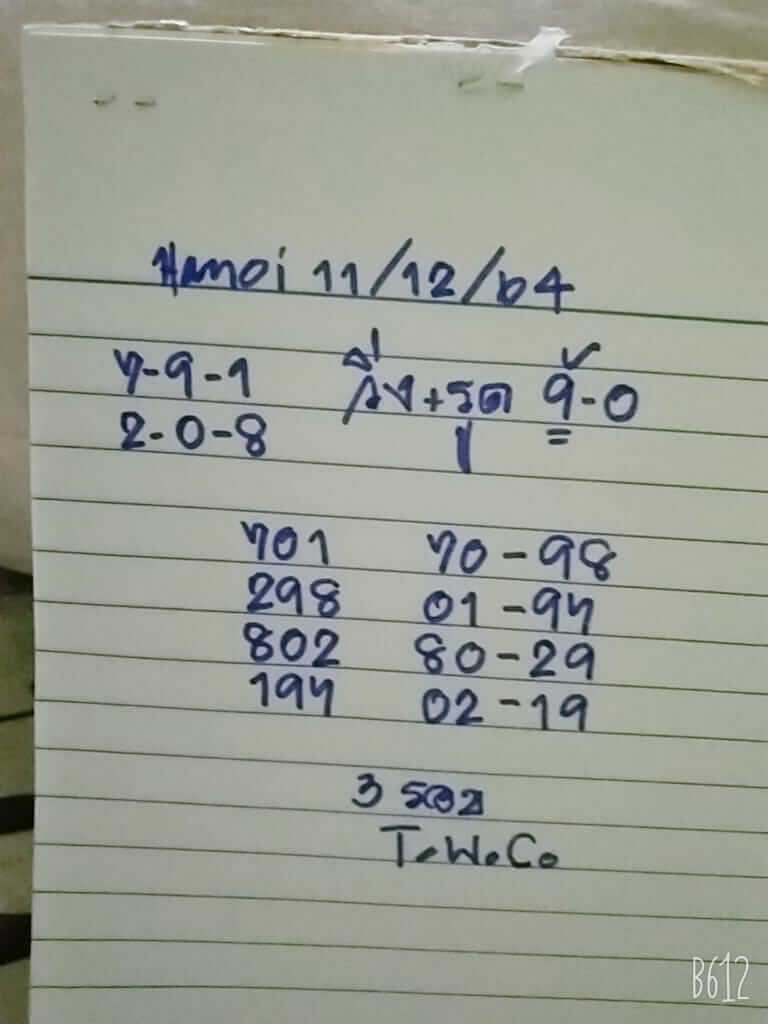 Hanoi 11/12/64
7-9-1 วิ่ง+รูด 9-0
2-0-8
701 70-98
298 01-97
802 80-29
197 02-19
3 รอบ
T.W.Co
B612